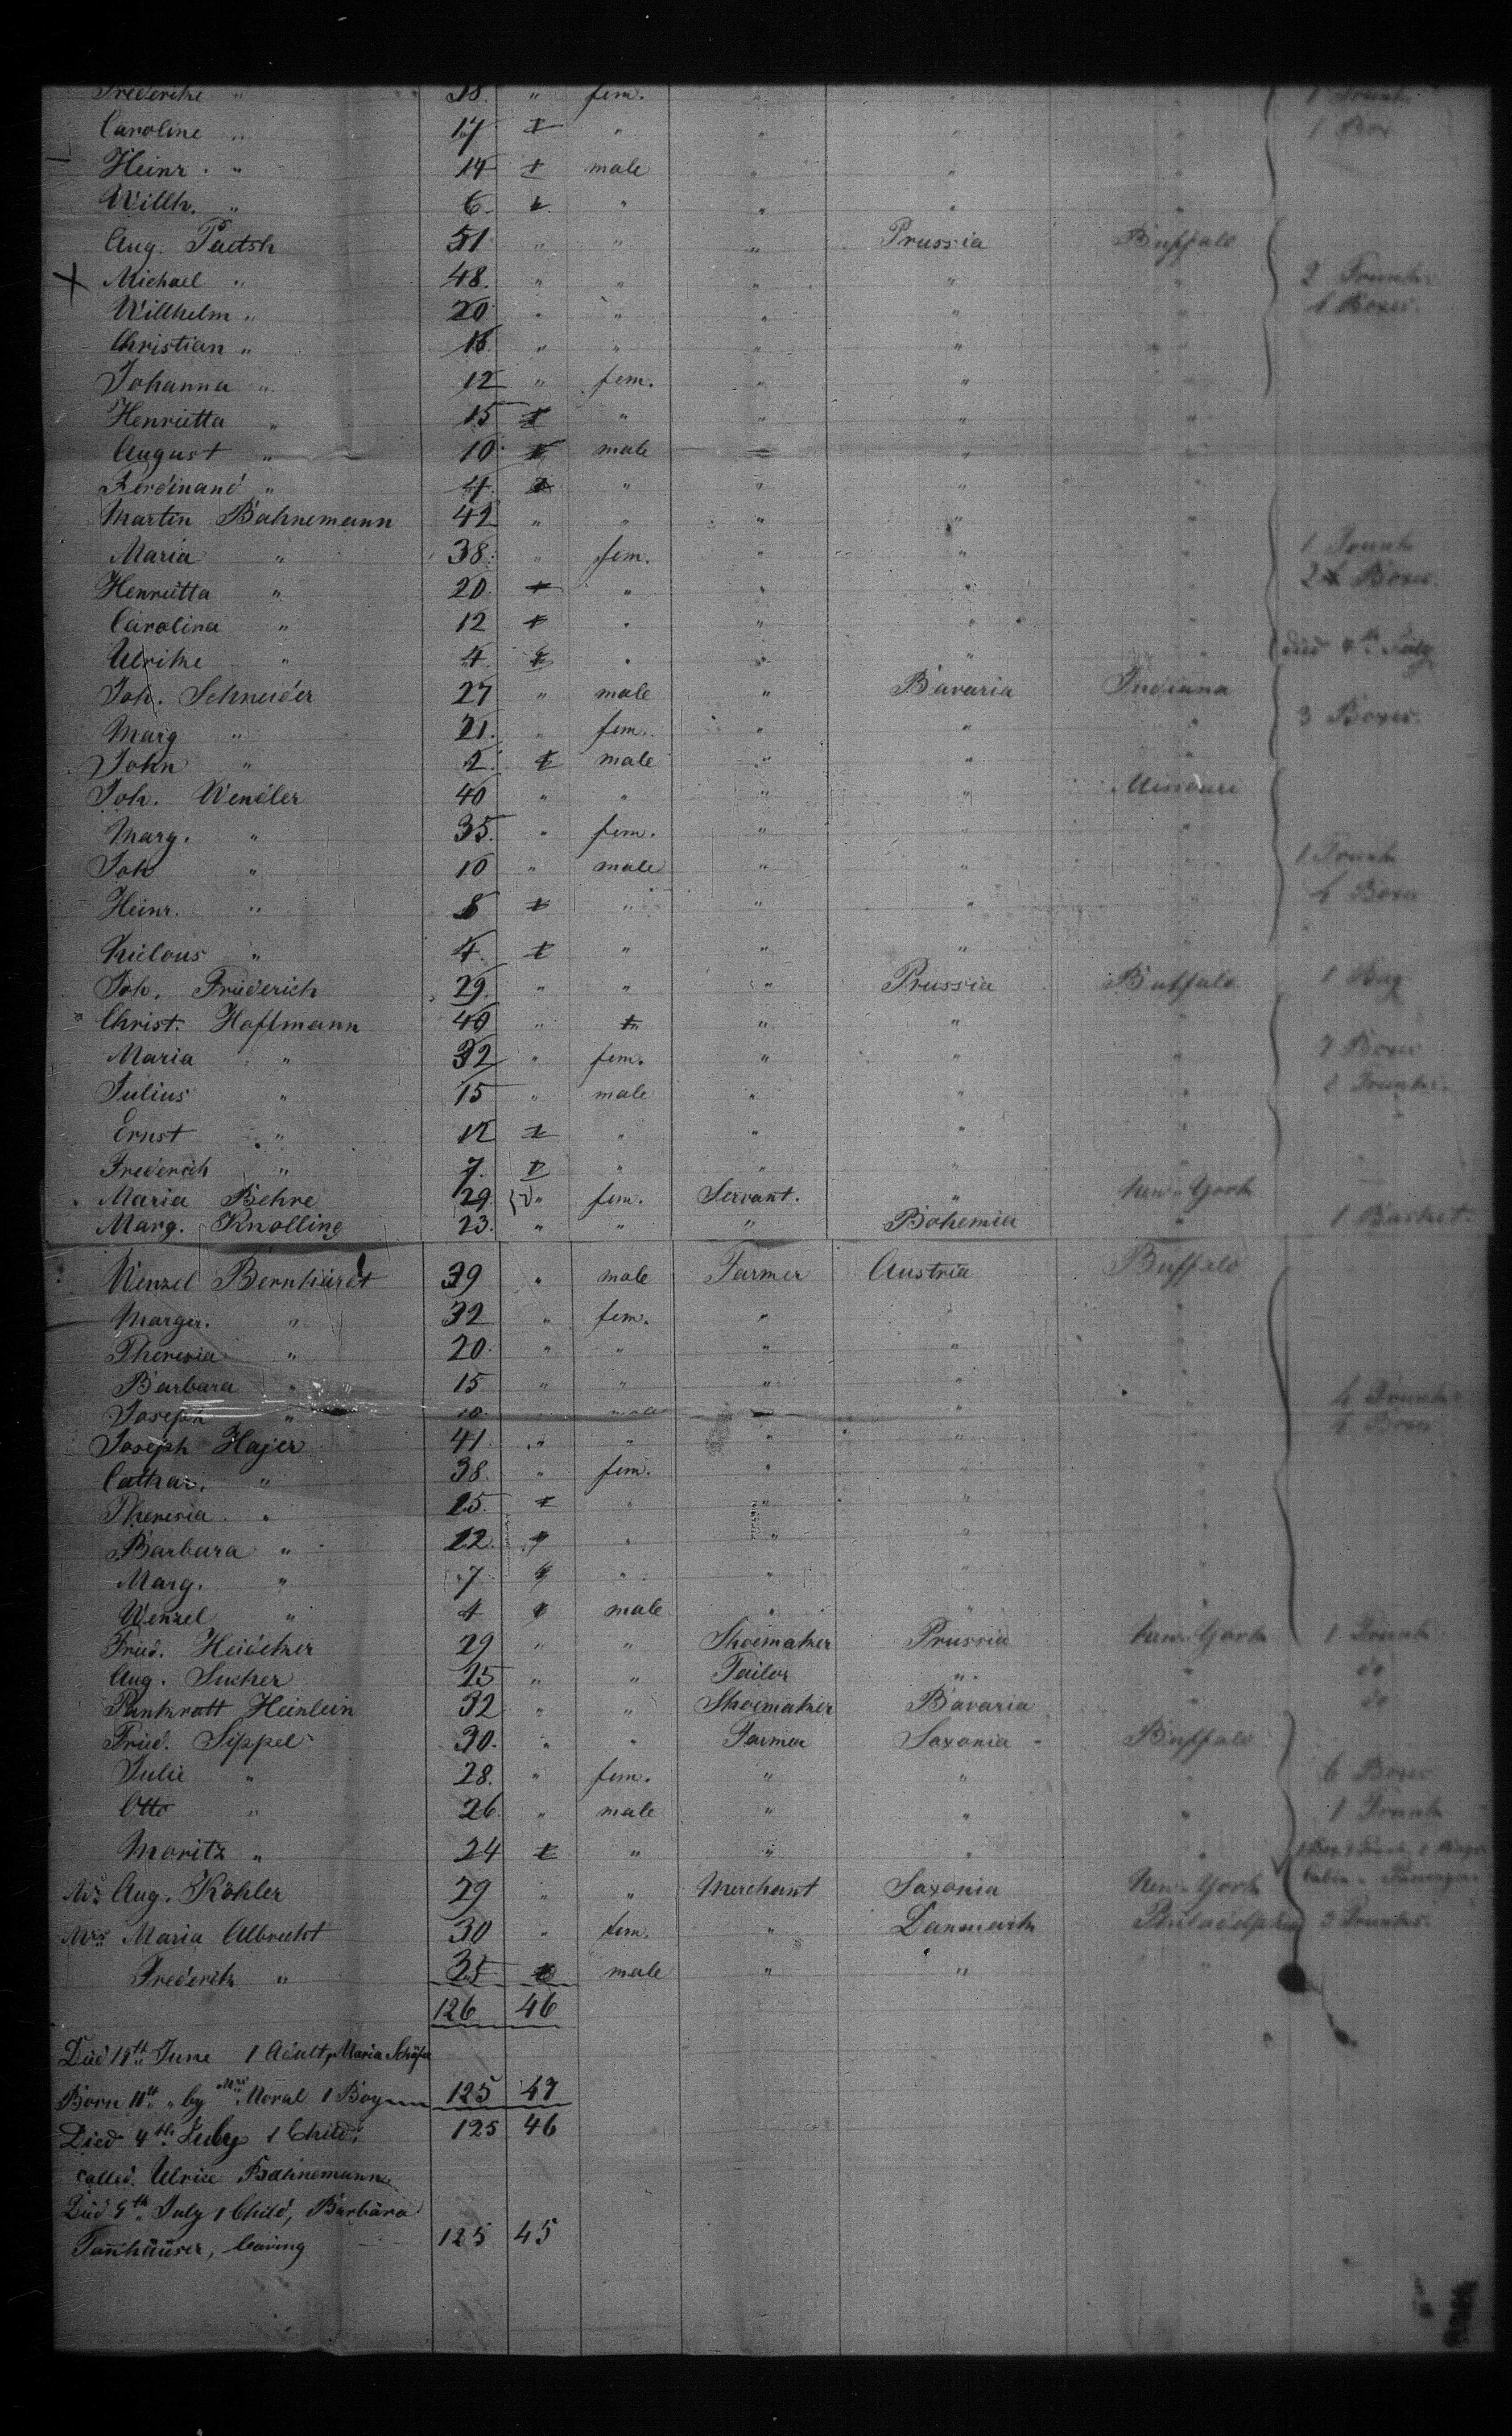 Frederike " 18. " fem. " " " 1 Trunk
Caroline " 17 + " " " " 1 Box
Heinr. " 14 + male " " "
Willh. " 6. + " " " "
Aug. Paetsh 51 " " " Prussia Buffalo
Michael " 48. " " " " " 2 Trunks
Willhelm " 20 " " " " " Boxes.
Christian " 18 " " " " "
Johanna " 12 " fem. " " "
Henrietta " 15 + " " " "
August " 10 + male " " "
Ferdinand " 4. + " " " "
Martin Bahnemann 42 " " " " "
Maria " 38. " fem. " " " 1 Trunk
Henrietta " 20. + " " " " 2 Boxes.
Carolina " 12 + " " " "
Ulrike " 4. + " " " " died 4th July
Joh. Schneider 27 " male " Bavaria Indiana
Marg " 21. " fem. " " " 3 Boxes.
John " 2. + male " " "
Joh. Wendler 40 " " " " Missouri
Marg. " 35. " fem. " " "
Joh " 10 " male " " " 1 Trunk
Heinr. " 8 + " " " "
Niclous " 4. + " " " "
Joh. Friederich 29. " " " Prussia Buffalo. 1 Bag
Christ. Hoffmann 40 " " " "
Maria " 32 " fem. " " " 7 Boxes
Julius " 15 " male " " " 2 Trunks.
Ernst " 12 + " " " "
Frederich " 7. + " " " "
Maria Behre 29. " fem. Servant. " New-York
Marg. Knolling 23. " " " Bohemia " 1 Basket.
Wenzel Bernhardt 39 " male Farmer Austria Buffalo
Marger. " 32 " fem. " " "
Theresia " 20. " " " " "
Barbara " 15 " " " " " 4 Trunks
Joseph " 10. male " " " Boxes
Joseph Hajer 41. " " " " "
Cathar. " 38. " fem. " " "
Theresia " 15. + " " " "
Barbara " 12. + " " " "
Marg. " 7 + " " " "
Wenzel " 4 + male " " "
Fried. Heidcker 29 " " Shoemaker Prussia New-York 1 Trunk
Aug. Sucher 25 " " Tailor " " do
Pankratt Heinlein 32 " " Shoemaker Bavaria " do
Fried. Sippel 30. " " Farmer Saxonia Buffalo
Julie " 28. " fem. " " " 6 Boxes
Otto " 26 " male " " " 1 Trunk
Moritz " 24 + " " " "
Mr. Aug. Köhler 29 " " Merchant Saxonia New-York Cabin-Passenger
Mrs Maria Albrecht 30 " fem. " Danmark Philadelphia 3 Trunks.
Frederik " 35 + male " " "
126 46
Died 11th June 1 Adult, Maria Schäfer
Born 11th " by Mrs. Moral 1 Boy 125 47
Died 4th July 1 Child, 125 46
called Ulrice Bahnemann
Died 9th July 1 Child, Barbara
Tannhäuser, leaving 125 45